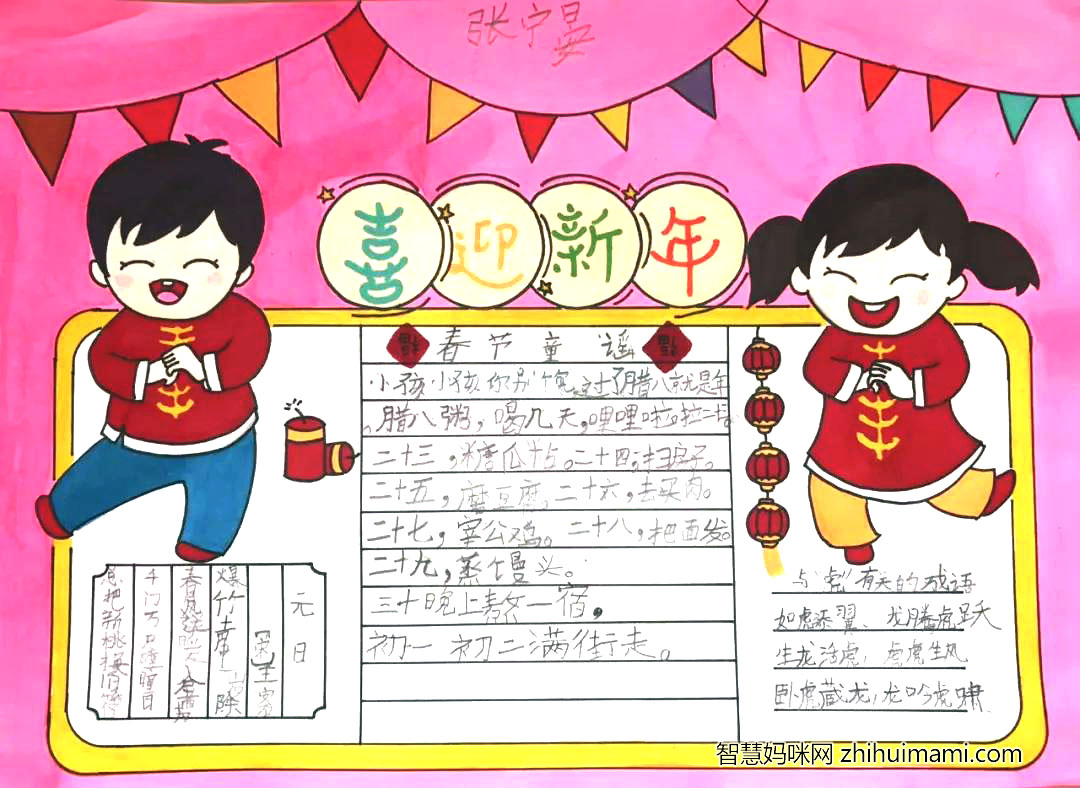 张宁晏
喜迎新年
福
福
春节童谣
小孩小孩你别馋,过了腊八就是年
腊八粥,喝几天,哩哩啦啦二十
二十三,糖瓜粘。二十四,扫房子。
二十五,磨豆腐,二十六,去买肉。
二十七,宰公鸡。二十八,把面发。
二十九,蒸馒头。
三十晚上熬一宿,
初一初二满街走。
元日
[宋]王安
爆竹声中一岁除
春风送暖入屠苏
千门万户曈曈日
总把新桃换旧符
与"虎"有关的成语
如虎添翼、龙腾虎跃
生龙活虎,虎虎生风
卧虎藏龙,龙吟虎啸
智慧妈咪网 zhihuimami.com